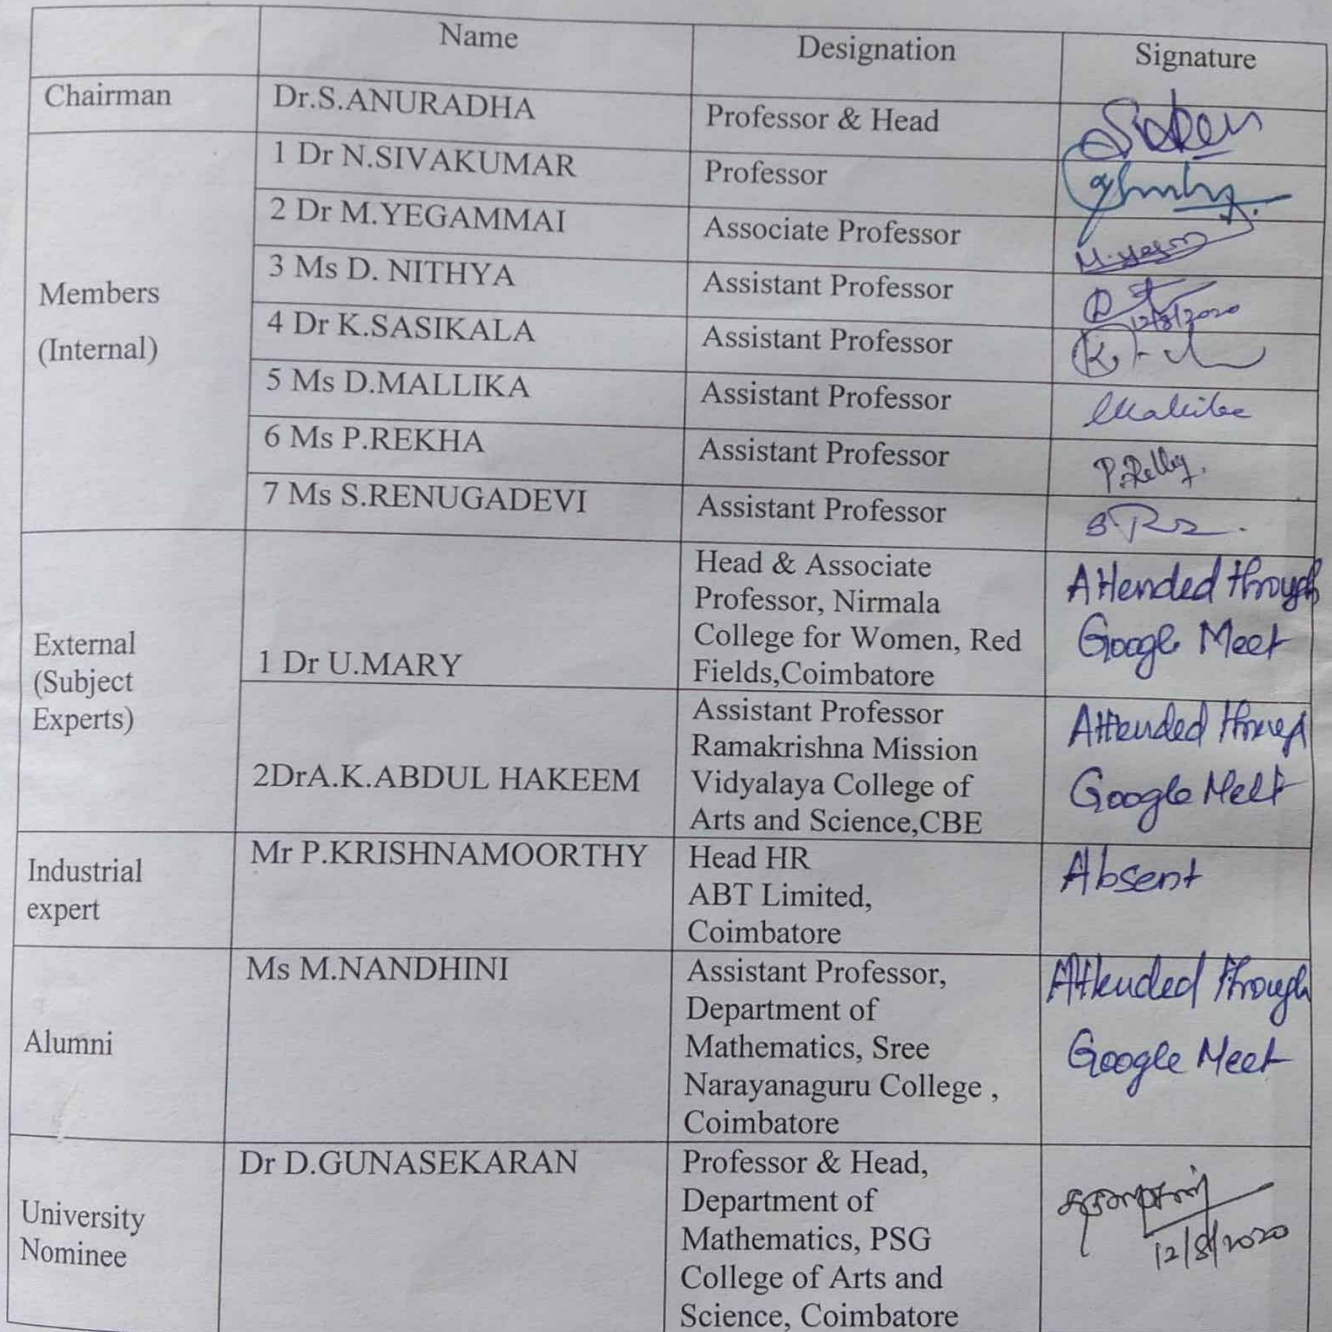 Name Designation Signature
Chairman Dr.S.ANURADHA Professor & Head
Members
(Internal)
1 Dr N.SIVAKUMAR Professor
2 Dr M.YEGAMMAI Associate Professor
3 Ms D. NITHYA Assistant Professor
12/8/2020
4 Dr K.SASIKALA Assistant Professor
5 Ms D.MALLIKA Assistant Professor
6 Ms P.REKHA Assistant Professor
7 Ms S.RENUGADEVI Assistant Professor
External
(Subject
Experts)
1 Dr U.MARY
Head & Associate
Professor, Nirmala
College for Women, Red
Fields,Coimbatore
Attended through
Google Meet
2DrA.K.ABDUL HAKEEM
Assistant Professor
Ramakrishna Mission
Vidyalaya College of
Arts and Science,CBE
Attended through
Google Meet
Industrial
expert
Mr P.KRISHNAMOORTHY
Head HR
ABT Limited,
Coimbatore
Absent
Alumni
Ms M.NANDHINI
Assistant Professor,
Department of
Mathematics, Sree
Narayanaguru College ,
Coimbatore
Attended through
Google Meet
University
Nominee
Dr D.GUNASEKARAN
Professor & Head,
Department of
Mathematics, PSG
College of Arts and
Science, Coimbatore
12/8/2020